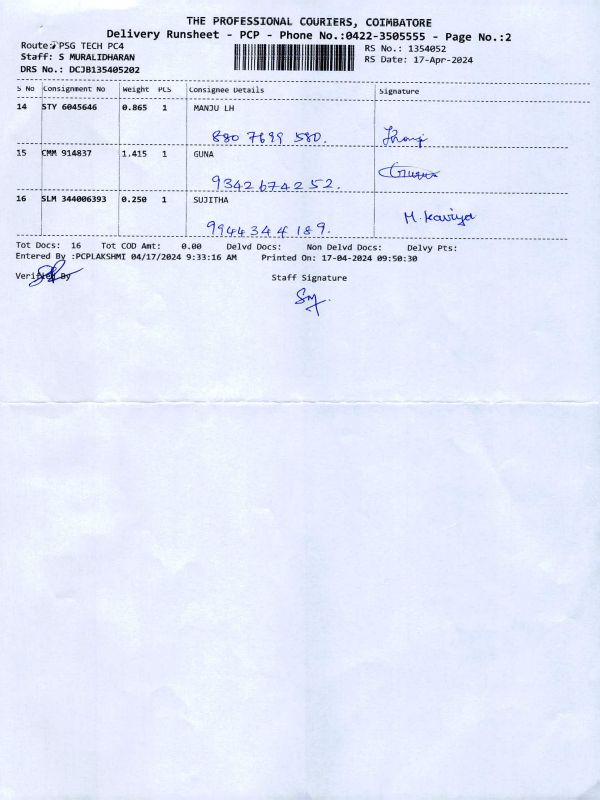 THE PROFESSIONAL COURIERS, COIMBATORE
Delivery Runsheet - PCP - Phone No.:0422-3505555 - Page No.:2
Route: PSG TECH PC4 RS No.: 1354052
Staff: S MURALIDHARAN RS Date: 17-Apr-2024
DRS No.: DCJB135405202
S No Consignment No Weight PCS Consignee Details Signature
14 STY 6045646 0.865 1 MANJU LH
880 7699 580.
15 CMM 914837 1.415 1 GUNA
9342674252. Guna
16 SLM 344006393 0.250 1 SUJITHA
9944344189. M. Kaviya
Tot Docs: 16 Tot COD Amt: 0.00 Delvd Docs: Non Delvd Docs: Delvy Pts:
Entered By :PCPLAKSHMI 04/17/2024 9:33:16 AM Printed On: 17-04-2024 09:50:30
Verified By Staff Signature